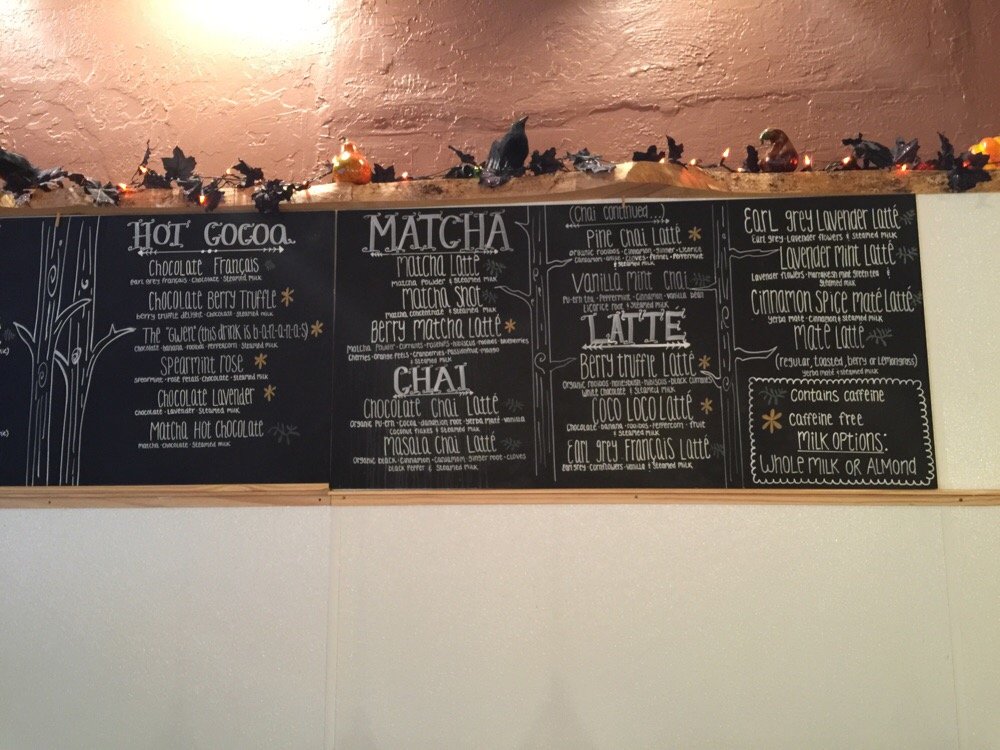 HOT COCOA
Chocolate Français
earl grey français · chocolate · steamed milk
Chocolate Berry Truffle
berry truffle delight · chocolate · steamed milk
The "Gwen" (this drink is b-a-n-a-n-a-s)
chocolate · banana · rooibos · peppercorn · steamed milk
Spearmint Rose
spearmint · rose petals · chocolate · steamed milk
Chocolate Lavender
chocolate · lavender · steamed milk
Matcha Hot Chocolate
matcha chocolate · steamed milk
MATCHA
Matcha Latté
matcha powder & steamed milk
Matcha Shot
matcha concentrate & steamed milk
Berry Matcha Latté
matcha powder · currants · rosehips · hibiscus · rooibos · blueberries
cherries · orange peels · cranberries · passionfruit · mango
& steamed milk
CHAI
Chocolate Chai Latté
organic pu-erh · cocoa · dandelion root · yerba maté · vanilla
coconut flakes & steamed milk
Masala Chai Latté
organic black · cinnamon · cardamom · ginger root · cloves
black pepper & steamed milk
(Chai continued...)
Pine Chai Latté
organic rooibos · cinnamon · ginger · licorice
cardamom · anise · cloves · fennel · peppermint
& steamed milk
Vanilla Mint Chai
pu-erh tea · peppermint · cinnamon · vanilla bean
licorice root & steamed milk
LATTE
Berry Truffle Latté
organic rooibos · honeybush · hibiscus · black currants
white chocolate & steamed milk
Coco Loco Latté
chocolate · banana · rooibos · peppercorn · fruit
& steamed milk
Earl Grey Français Latté
earl grey · cornflowers · vanilla & steamed milk
Earl Grey Lavender Latté
earl grey · lavender flowers & steamed milk
Lavender Mint Latté
lavender flowers · marrakesh mint green tea &
steamed milk
Cinnamon Spice Maté Latté
yerba maté · cinnamon & steamed milk
Maté Latté
(regular, toasted, berry or lemongrass)
yerba maté & steamed milk
contains caffeine
caffeine free
Milk Options:
Whole Milk or Almond